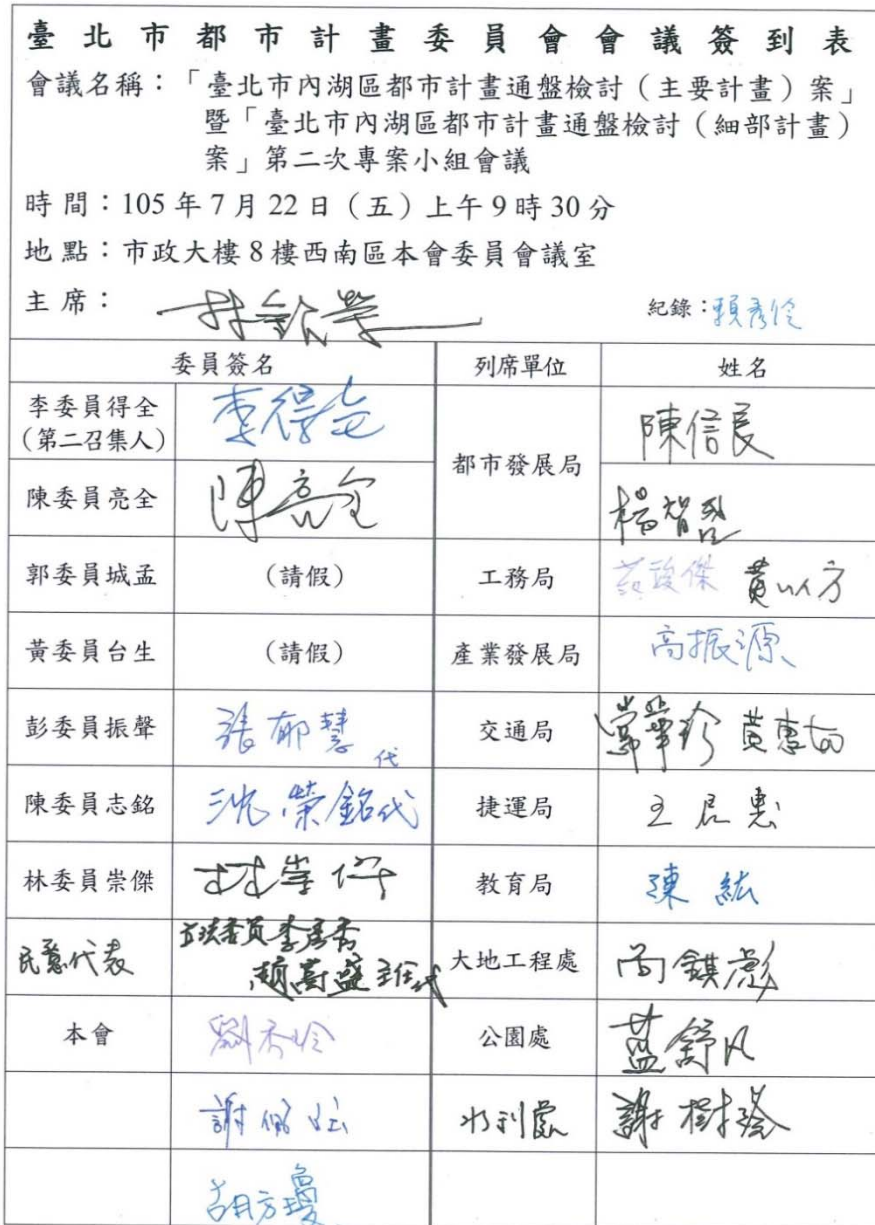 臺北市都市計畫委員會會議簽到表
會議名稱：「臺北市內湖區都市計畫通盤檢討（主要計畫）案」
暨「臺北市內湖區都市計畫通盤檢討（細部計畫）
案」第二次專案小組會議
時間：105年7月22日（五）上午9時30分
地點：市政大樓8樓西南區本會委員會議室
主席：
紀錄：賴彥伶
委員簽名 列席單位 姓名
李委員得全 李得全
（第二召集人）
都市發展局 陳信良
陳委員亮全 陳亮全
郭委員城孟 （請假） 工務局 黃以方
黃委員台生 （請假） 產業發展局 高振源
彭委員振聲 張郁慧代 交通局
陳委員志銘 沈榮銘代 捷運局
林委員崇傑 林崇傑 教育局 陳紘
民意代表 立法委員李彥秀
大地工程處
本會 公園處 藍舒凡
水利處
胡方瓊